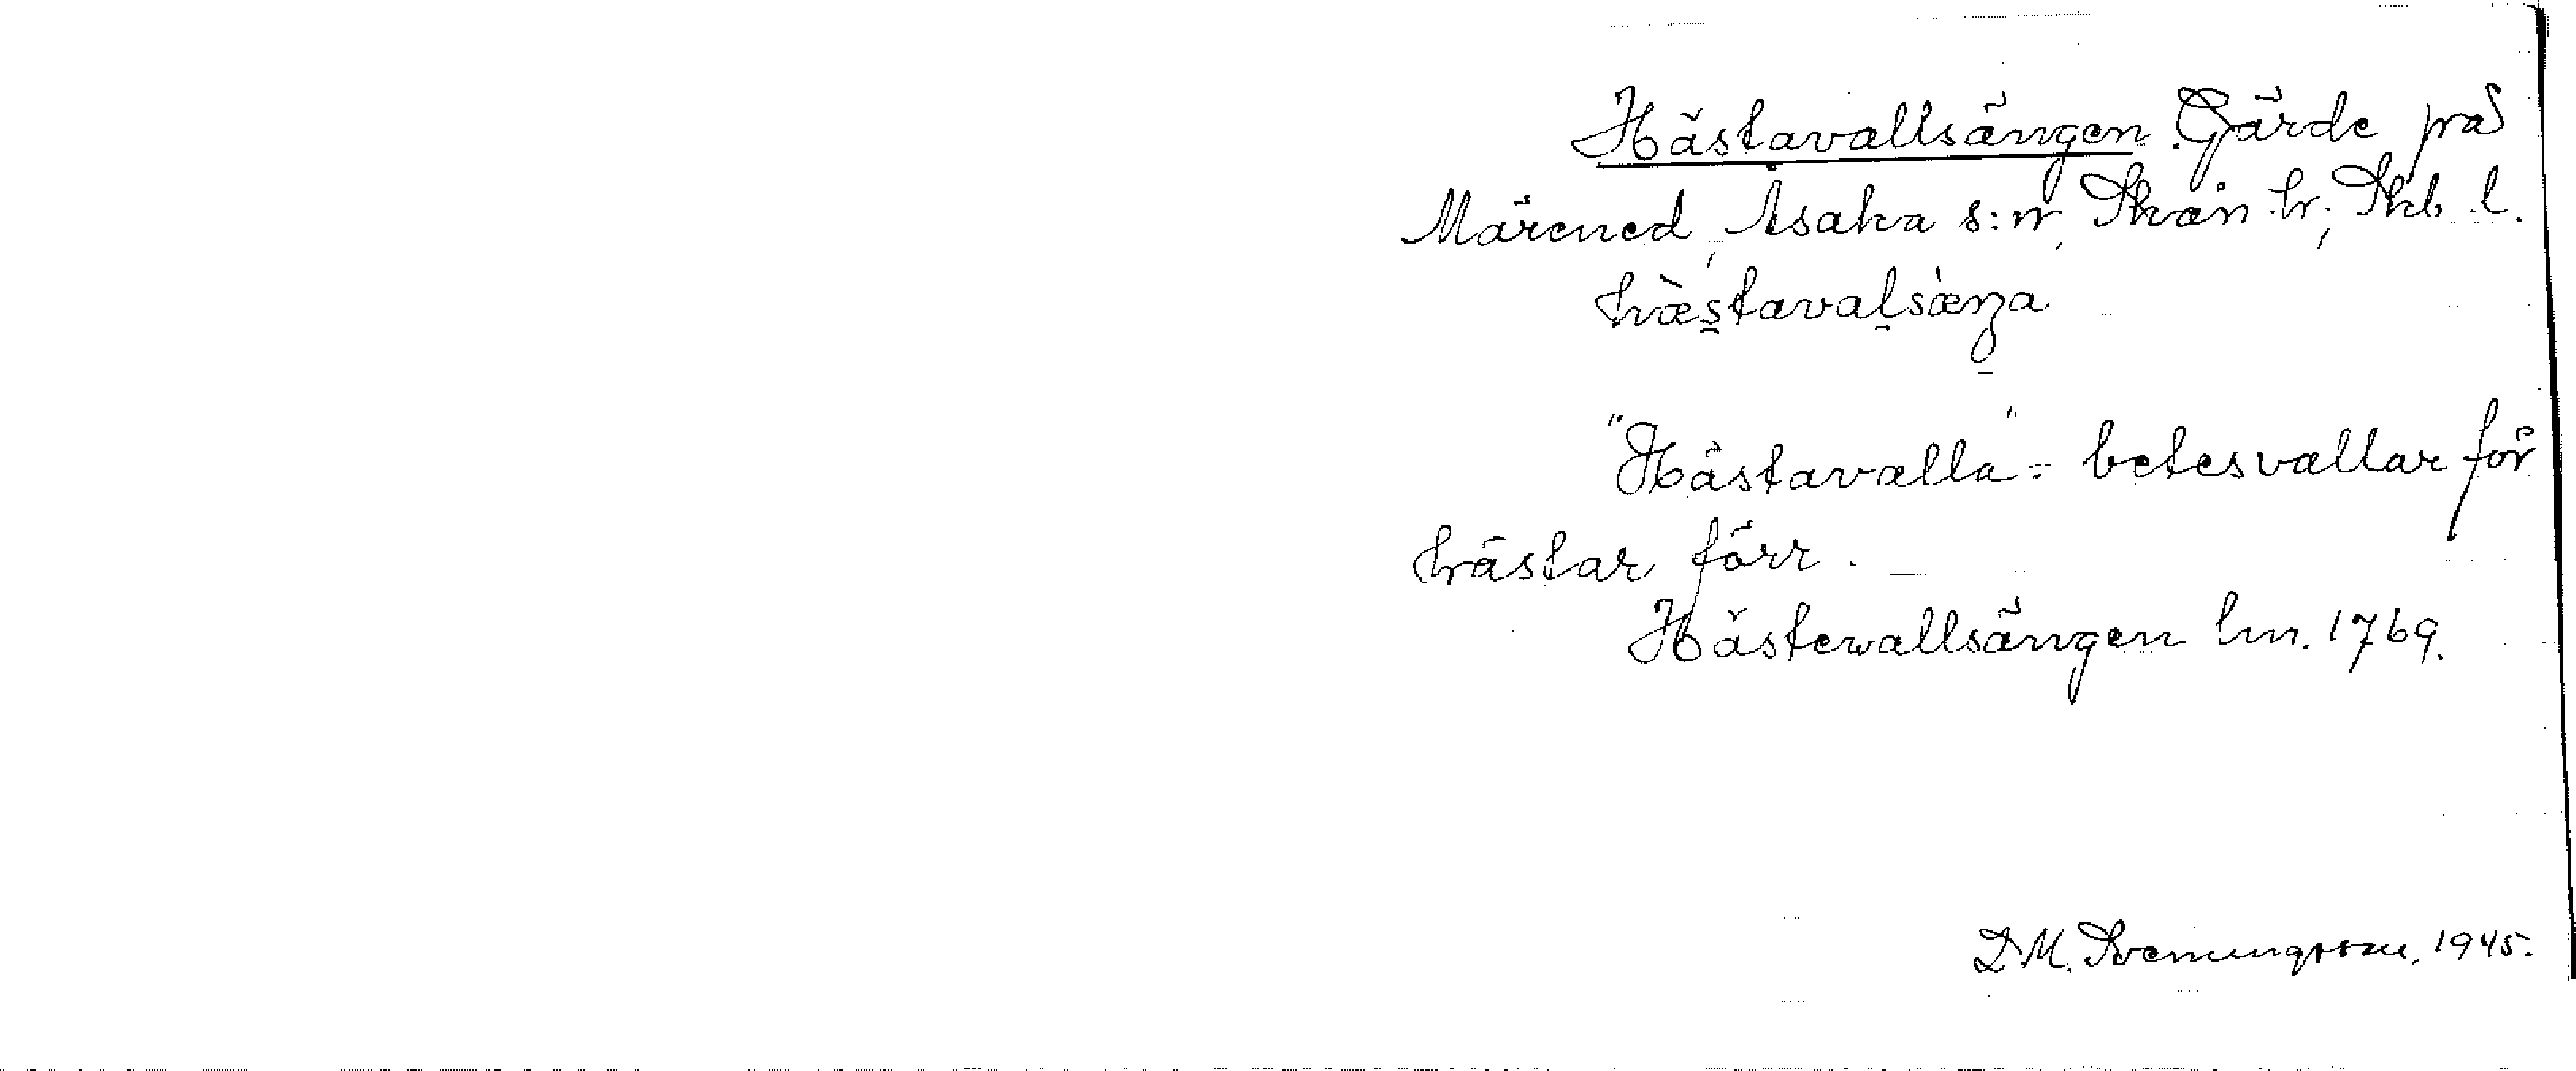 Hästavallsängen Gärde på
Märened, Åsaka s:n, Skån. hr, Skb l.
hæ̀stavalsæ̀ŋa
"Hästavalla" = betesvallar för
hästar förr.
Hästewallsängen lm. 1769.
D M. Svenungsson, 1945.